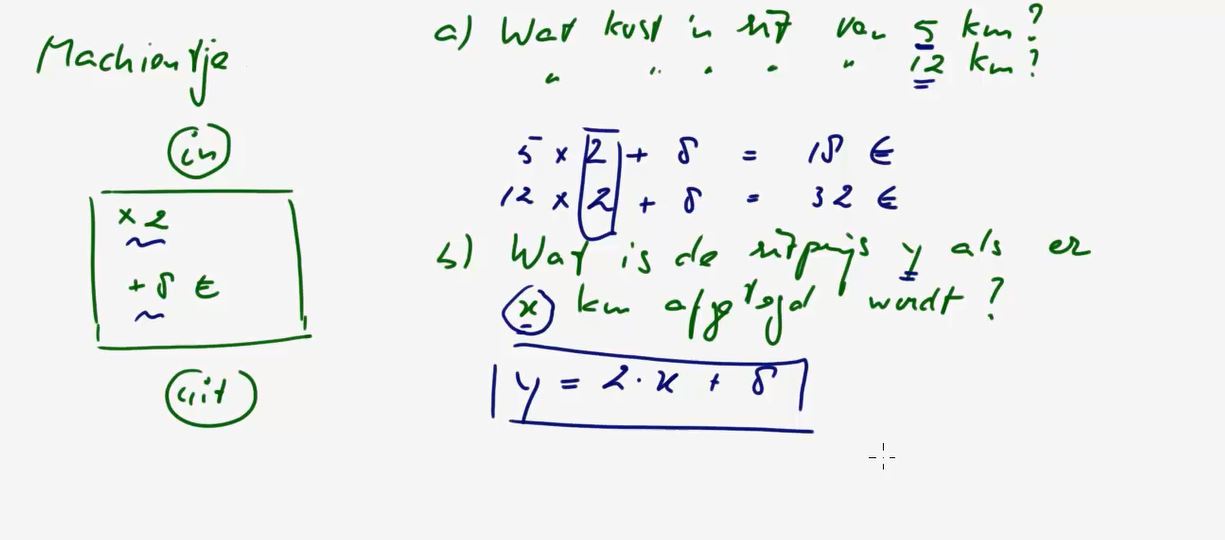 Machientje
in
x 2
+ 8 €
uit
a) Wat kost in rit van 5 km?
" " " " " 12 km?
5 x 2 + 8 = 18 €
12 x 2 + 8 = 32 €
b) Wat is de ritprijs y als er
x km afgelegd wordt?
y = 2 · x + 8